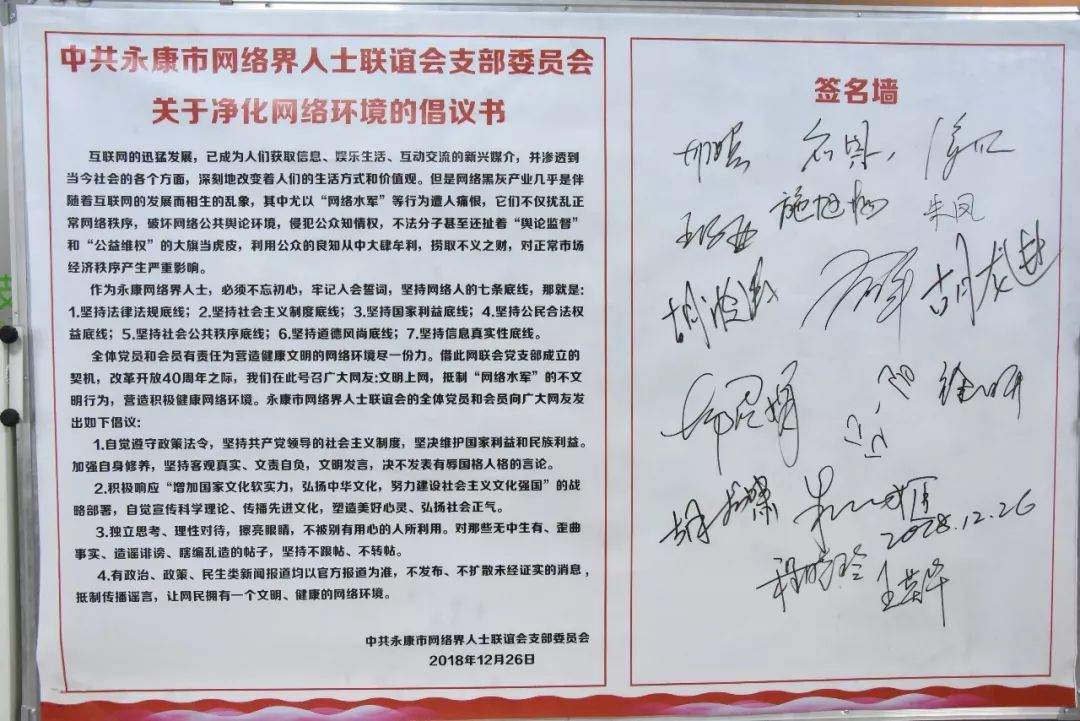 中共永康市网络界人士联谊会支部委员会
关于净化网络环境的倡议书
互联网的迅猛发展，已成为人们获取信息、娱乐生活、互动交流的新兴媒介，并渗透到
当今社会的各个方面，深刻地改变着人们的生活方式和价值观。但是网络黑灰产业几乎是伴
随着互联网的发展而相生的乱象，其中尤以“网络水军”等行为遭人痛恨，它们不仅扰乱正
常网络秩序，破坏网络公共舆论环境，侵犯公众知情权，不法分子甚至还扯着“舆论监督”
和“公益维权”的大旗当虎皮，利用公众的良知从中大肆牟利，捞取不义之财，对正常市场
经济秩序产生严重影响。
作为永康网络界人士，必须不忘初心，牢记入会誓词，坚持网络人的七条底线，那就是：
1.坚持法律法规底线；2.坚持社会主义制度底线；3.坚持国家利益底线；4.坚持公民合法权
益底线；5.坚持社会公共秩序底线；6.坚持道德风尚底线；7.坚持信息真实性底线。
全体党员和会员有责任为营造健康文明的网络环境尽一份力。借此网联会党支部成立的
契机，改革开放40周年之际，我们在此号召广大网友:文明上网，抵制“网络水军”的不文
明行为，营造积极健康网络环境。永康市网络界人士联谊会的全体党员和会员向广大网友发
出如下倡议:
1.自觉遵守政策法令，坚持共产党领导的社会主义制度，坚决维护国家利益和民族利益。
加强自身修养，坚持客观真实、文责自负，文明发言，决不发表有辱国格人格的言论。
2.积极响应“增加国家文化软实力，弘扬中华文化，努力建设社会主义文化强国”的战
略部署，自觉宣传科学理论、传播先进文化，塑造美好心灵、弘扬社会正气。
3.独立思考、理性对待，擦亮眼睛，不被别有用心的人所利用。对那些无中生有、歪曲
事实、造谣诽谤、瞎编乱造的帖子，坚持不跟帖、不转帖。
4.有政治、政策、民生类新闻报道均以官方报道为准，不发布、不扩散未经证实的消息，
抵制传播谣言，让网民拥有一个文明、健康的网络环境。
中共永康市网络界人士联谊会支部委员会
2018年12月26日
签名墙
朱凤
2028.12.26
王英华